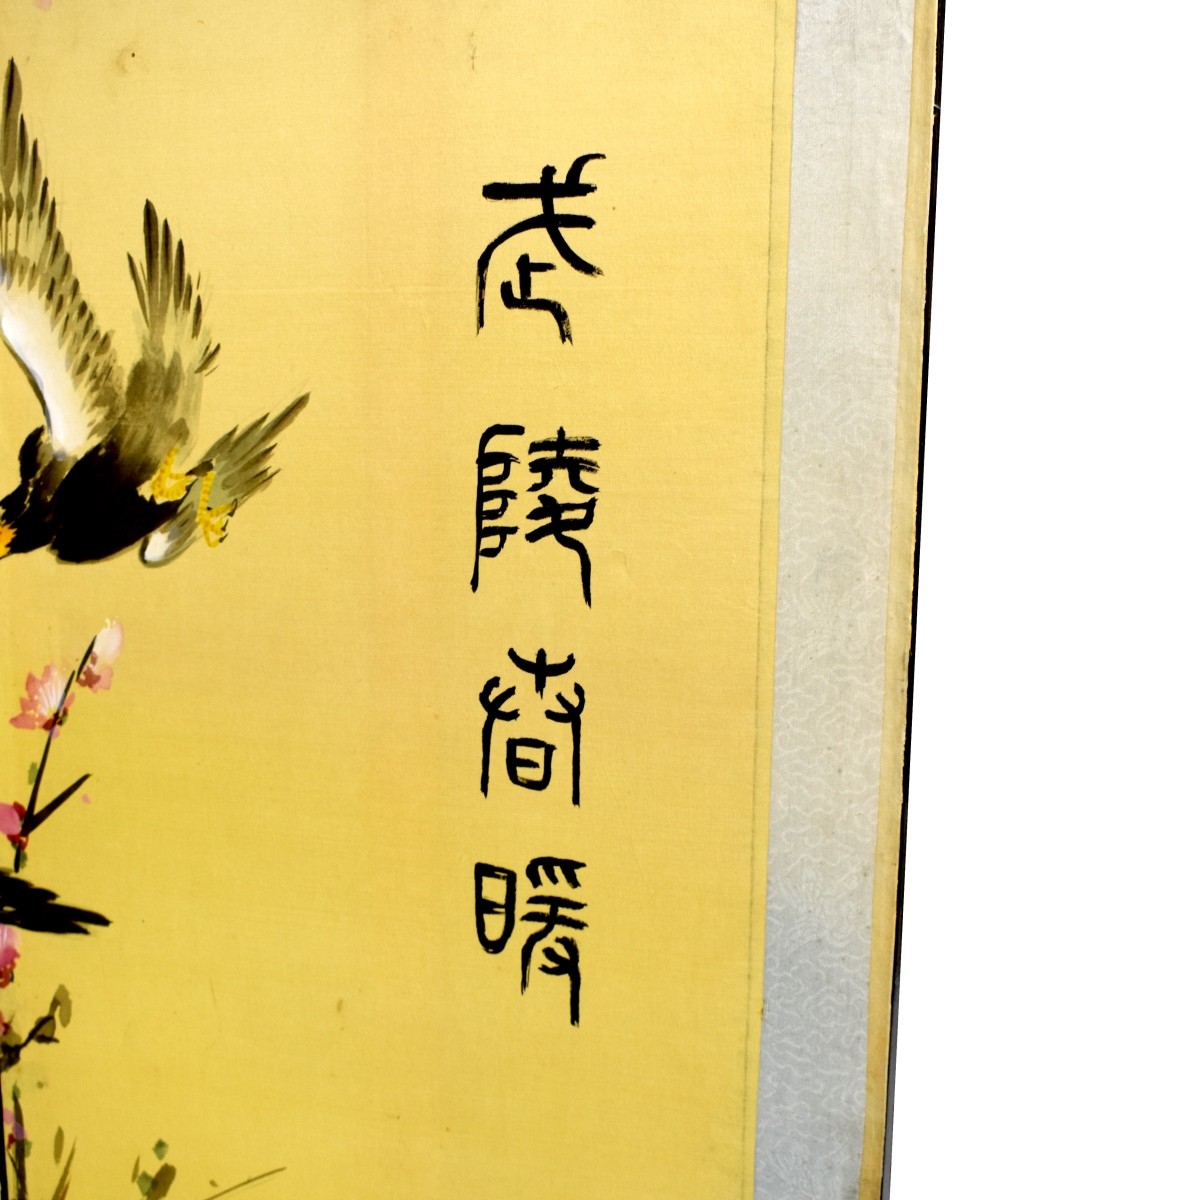 武陵春暖